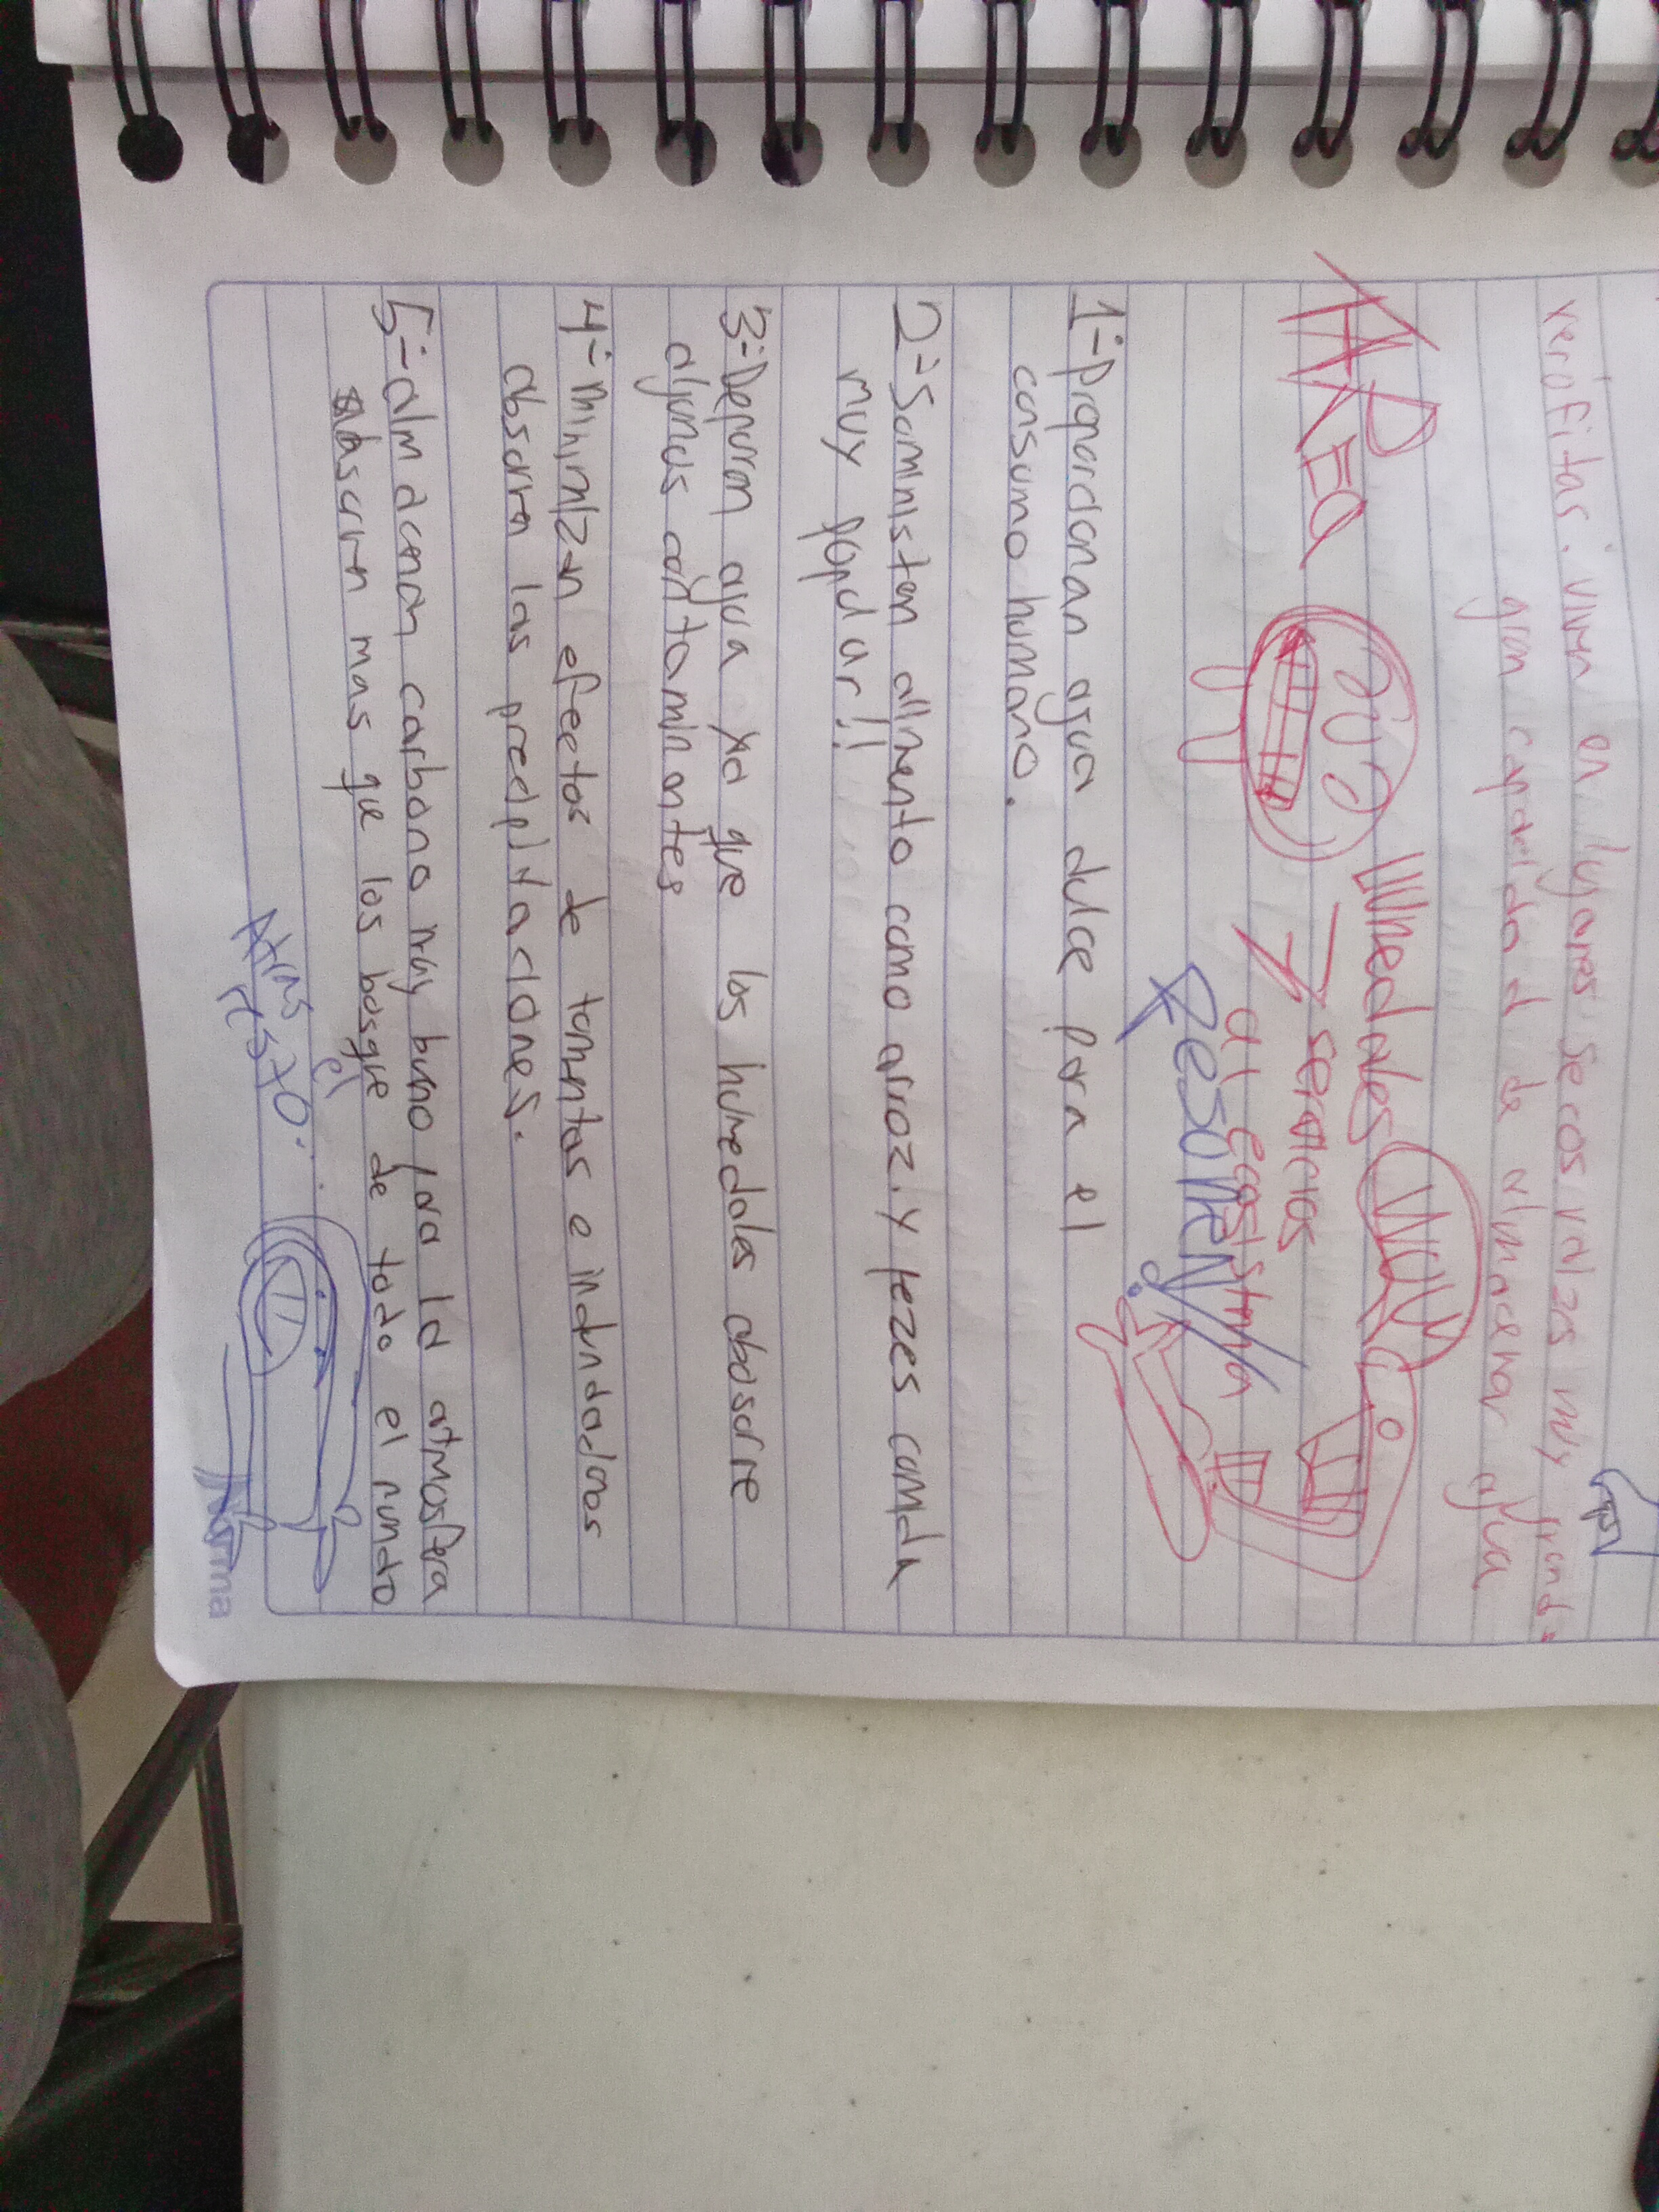 xerofitas. viven en lugares secos raizes muy grand=
gran capacidad de almacenar agua
TAREA
Humedales
7 servicios
al ecosistema
RESUMEN
1-proporcionan agua dulce para el
consumo humano.
2-Suministran alimento como arroz. y pezes comida
muy popular!!
3-Depuran agua ya que los humedales abosorve
algunos contaminantes
4-minimizan efectos de tormentas e indundaciones
absorven las precipitaciones.
5-almacenan carbono muy bueno para la atmosfera
abascuren mas que los bosque de todo el mundo
Atras
el
resto.
Norma